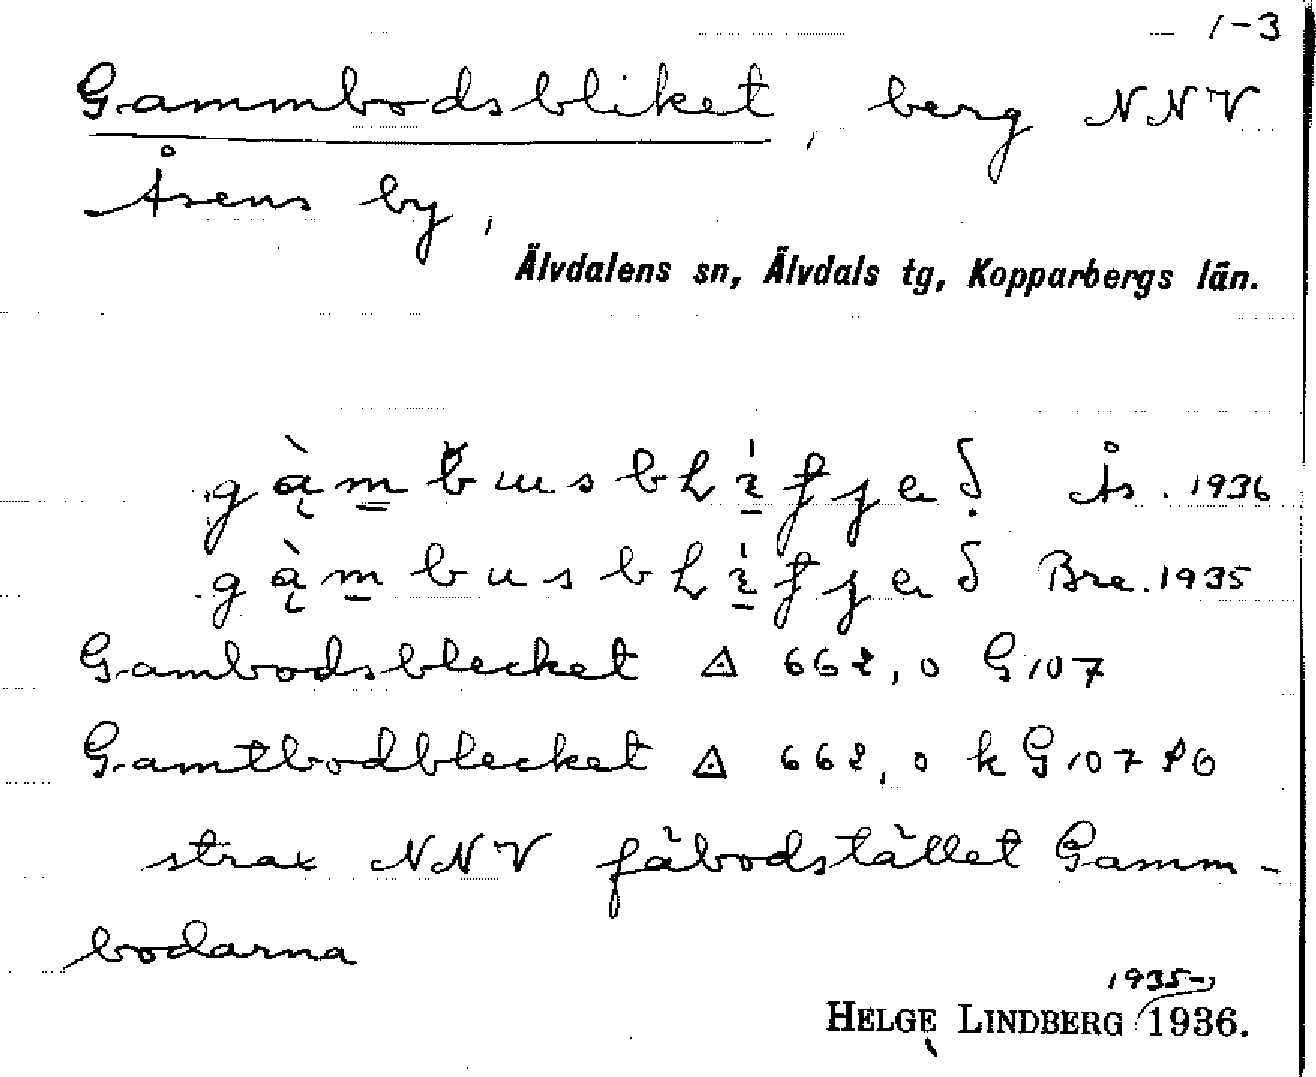 1-3
Gammbodsbliket, berg NNV
Åsens by,
Älvdalens sn, Älvdals tg, Kopparbergs län.
Ås. 1936
Bre. 1935
Gambodsblecket △ 662,0 G 107
Gamtbodblecket △ 662,0 k G 107 SÖ
strax NNV fäbodstället Gamm-
bodarna
1935-
HELGE LINDBERG 1936.